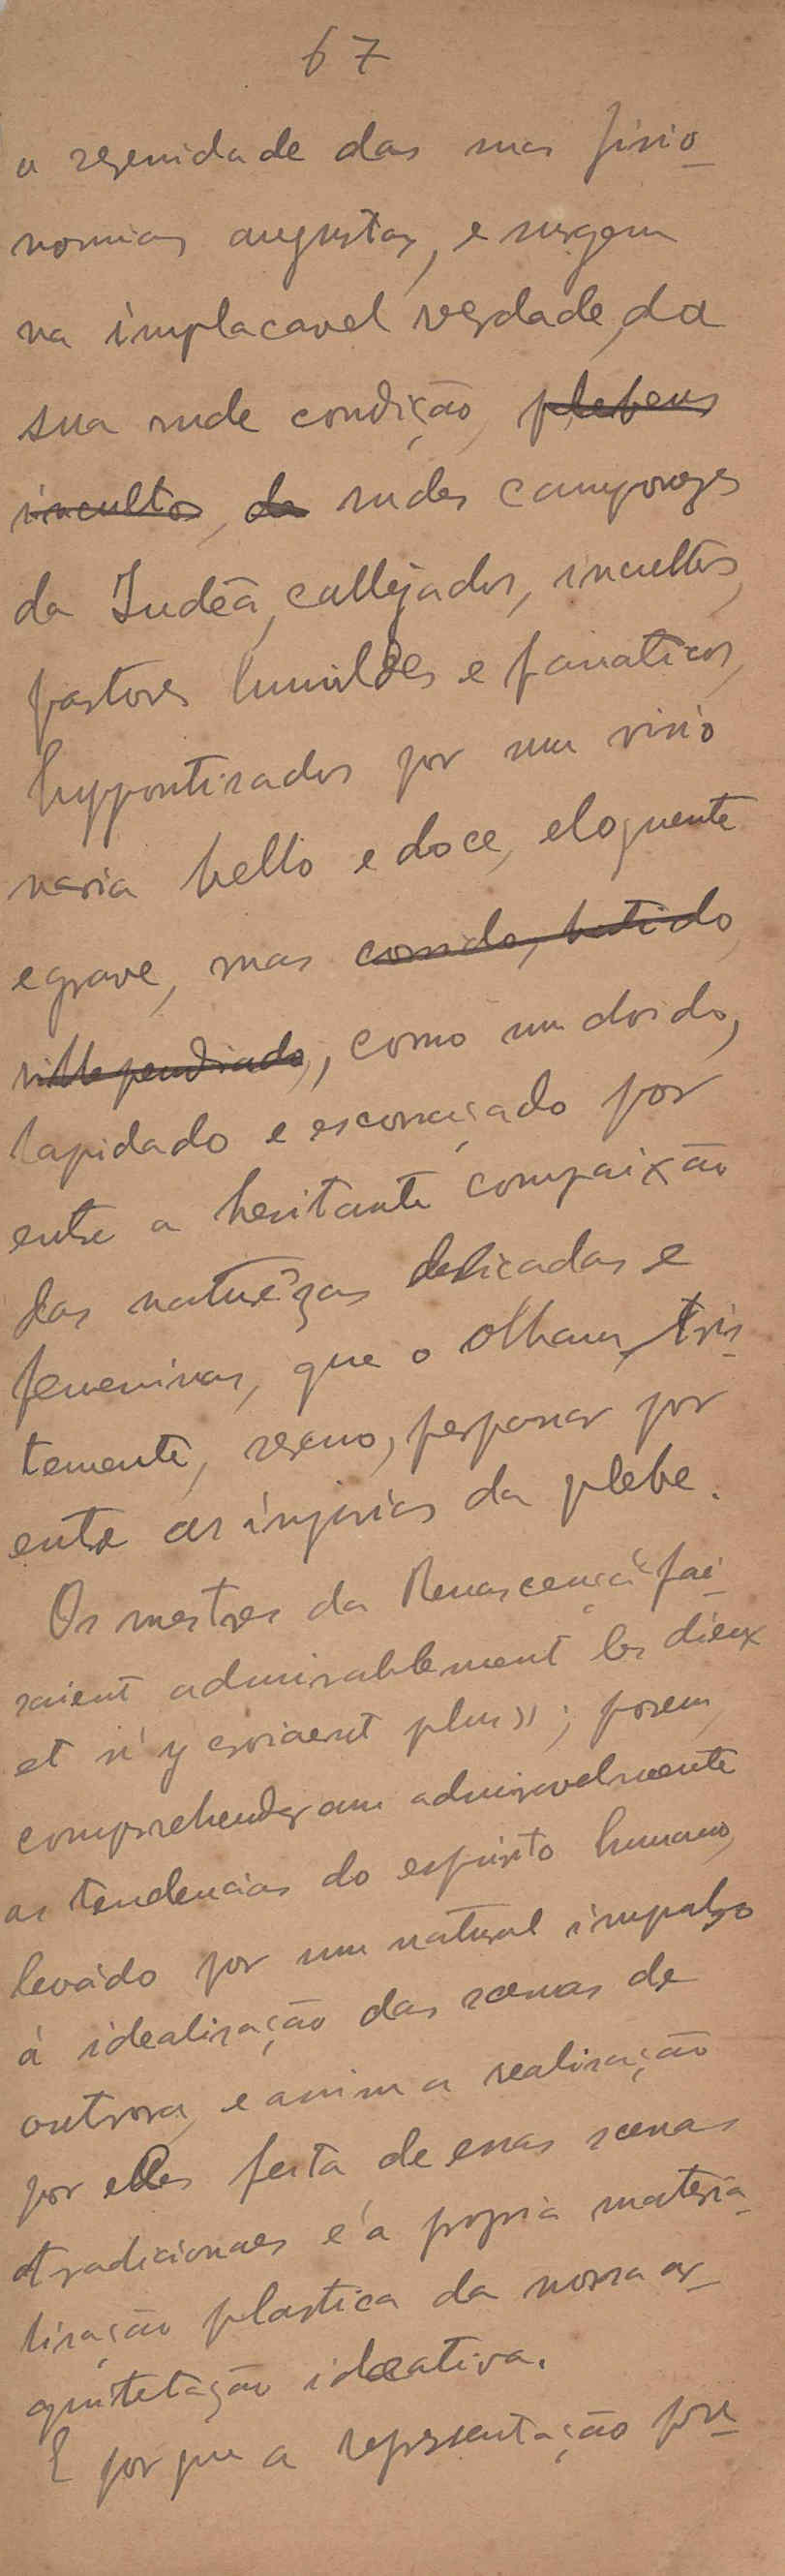 67
a serenidade das suas fisio-
nomias augustas, e surgem
na implacavel verdade, da
sua rude condição, plebeus
incultos, de rudes camponezes
da Judêa, callejados, incultos,
pastores humildes e fanaticos,
hyppontisados por um visio
nario bello e doce, eloquente
e grave, mas corrido, batido,
villependiado, como um doido,
lapidado e escorraçado por
entre a hesitante compaixão
das naturezas delicadas e
femeninas, que o olham, tris-
temente, sereno, perpassar por
entre as injurias da plebe.
Os mestres da Renascença «fai-
saient admirablement les dieux
et n'y croiaent plus»; porem,
comprehenderam admiravelmente
as tendencias do espirito humano,
levádo por um natural impulso
á idealisação das scenas de
outrora, e assim a realisação
por elles feita de essas scenas
tradicionaes é a propria materia-
lisação plastica da nossa ar-
quitetação ideativa.
E por que a representação pre-